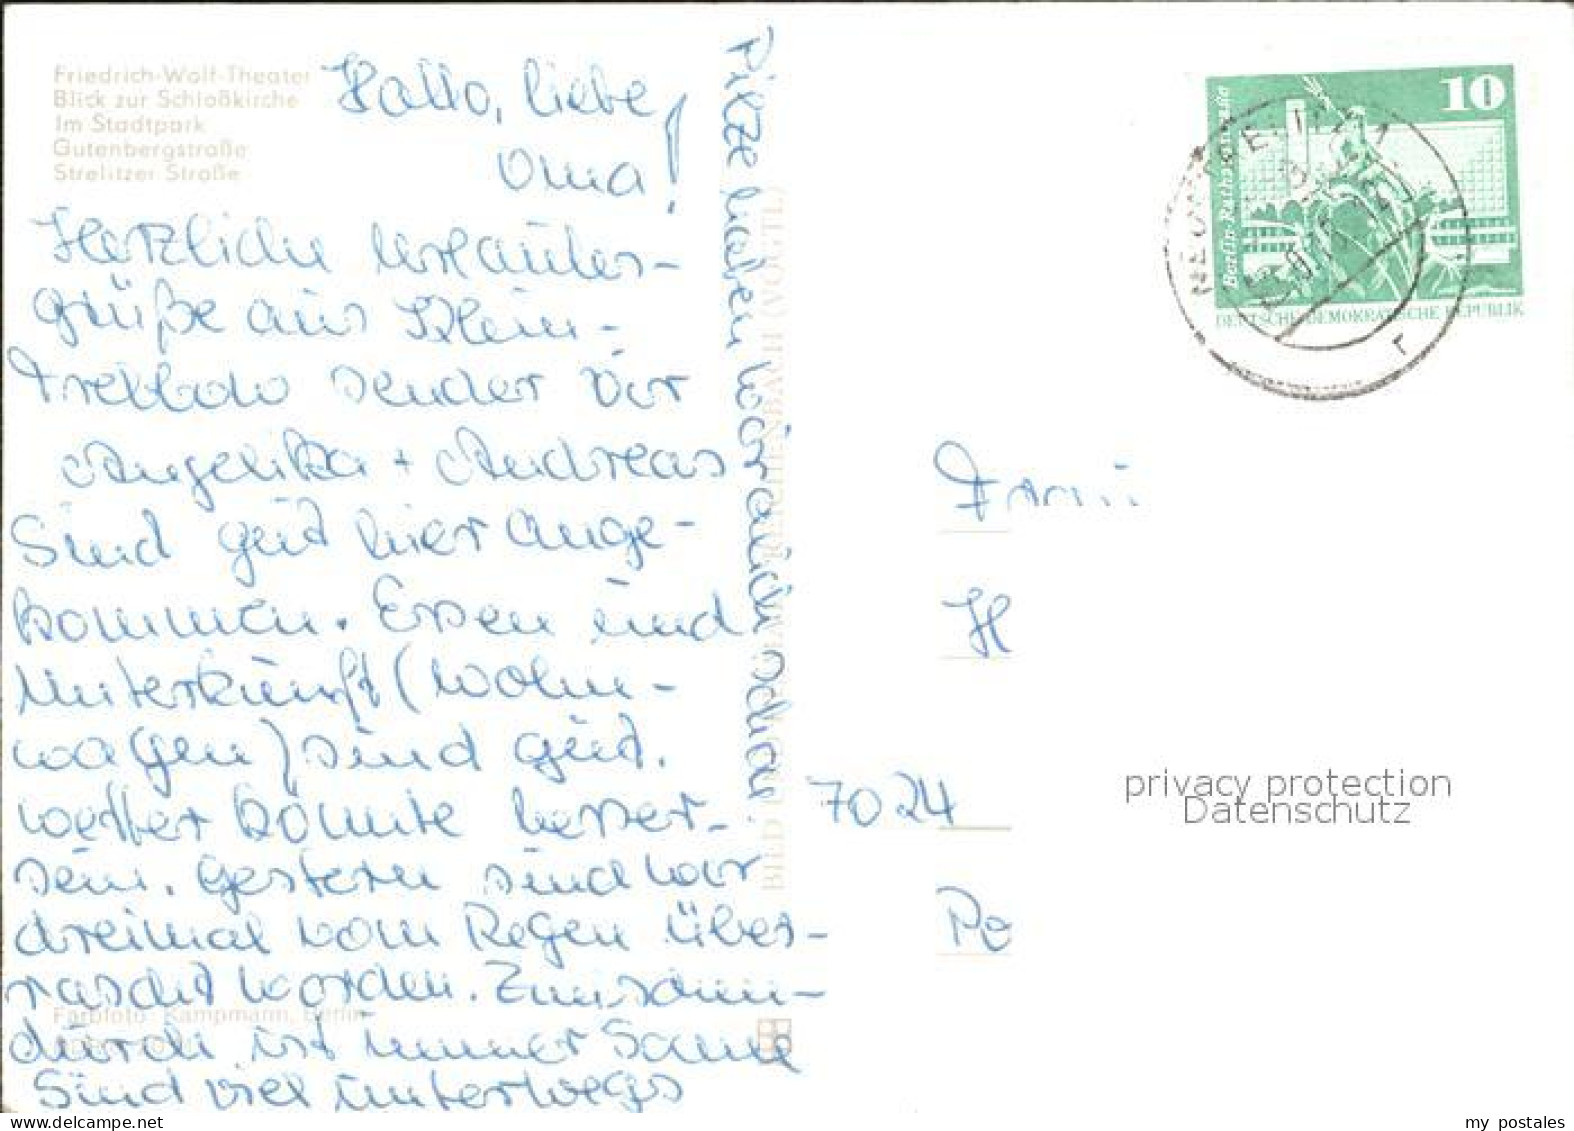 Friedrich-Wolf-Theater
Blick zur Schloßkirche
Im Stadtpark
Gutenbergstraße
Strelitzer Straße
Hallo, liebe
Oma!
Herzliche Urlaubs-
grüße aus Klein-
Trebbow senden Dir
Angelika + Andreas
Sind gut hier ange-
kommen. Essen und
Unterkunft (Wohn-
wagen) sind gut.
Wetter könnte besser
sein. Gestern sind wir
dreimal vom Regen über-
rascht worden. Zwischen-
durch ist immer Sonne
Sind viel unterwegs
Pilze haben wir auch schon
BILD UND REICHENBACH (VOGTL)
Farbfoto: Kampmann, Berlin
10
Berlin-Ruthenstraße
DEUTSCHE DEMOKRATISCHE REPUBLIK
NEUSTRELITZ 1
Fami
H
7024
Pe
privacy protection
Datenschutz
my postales